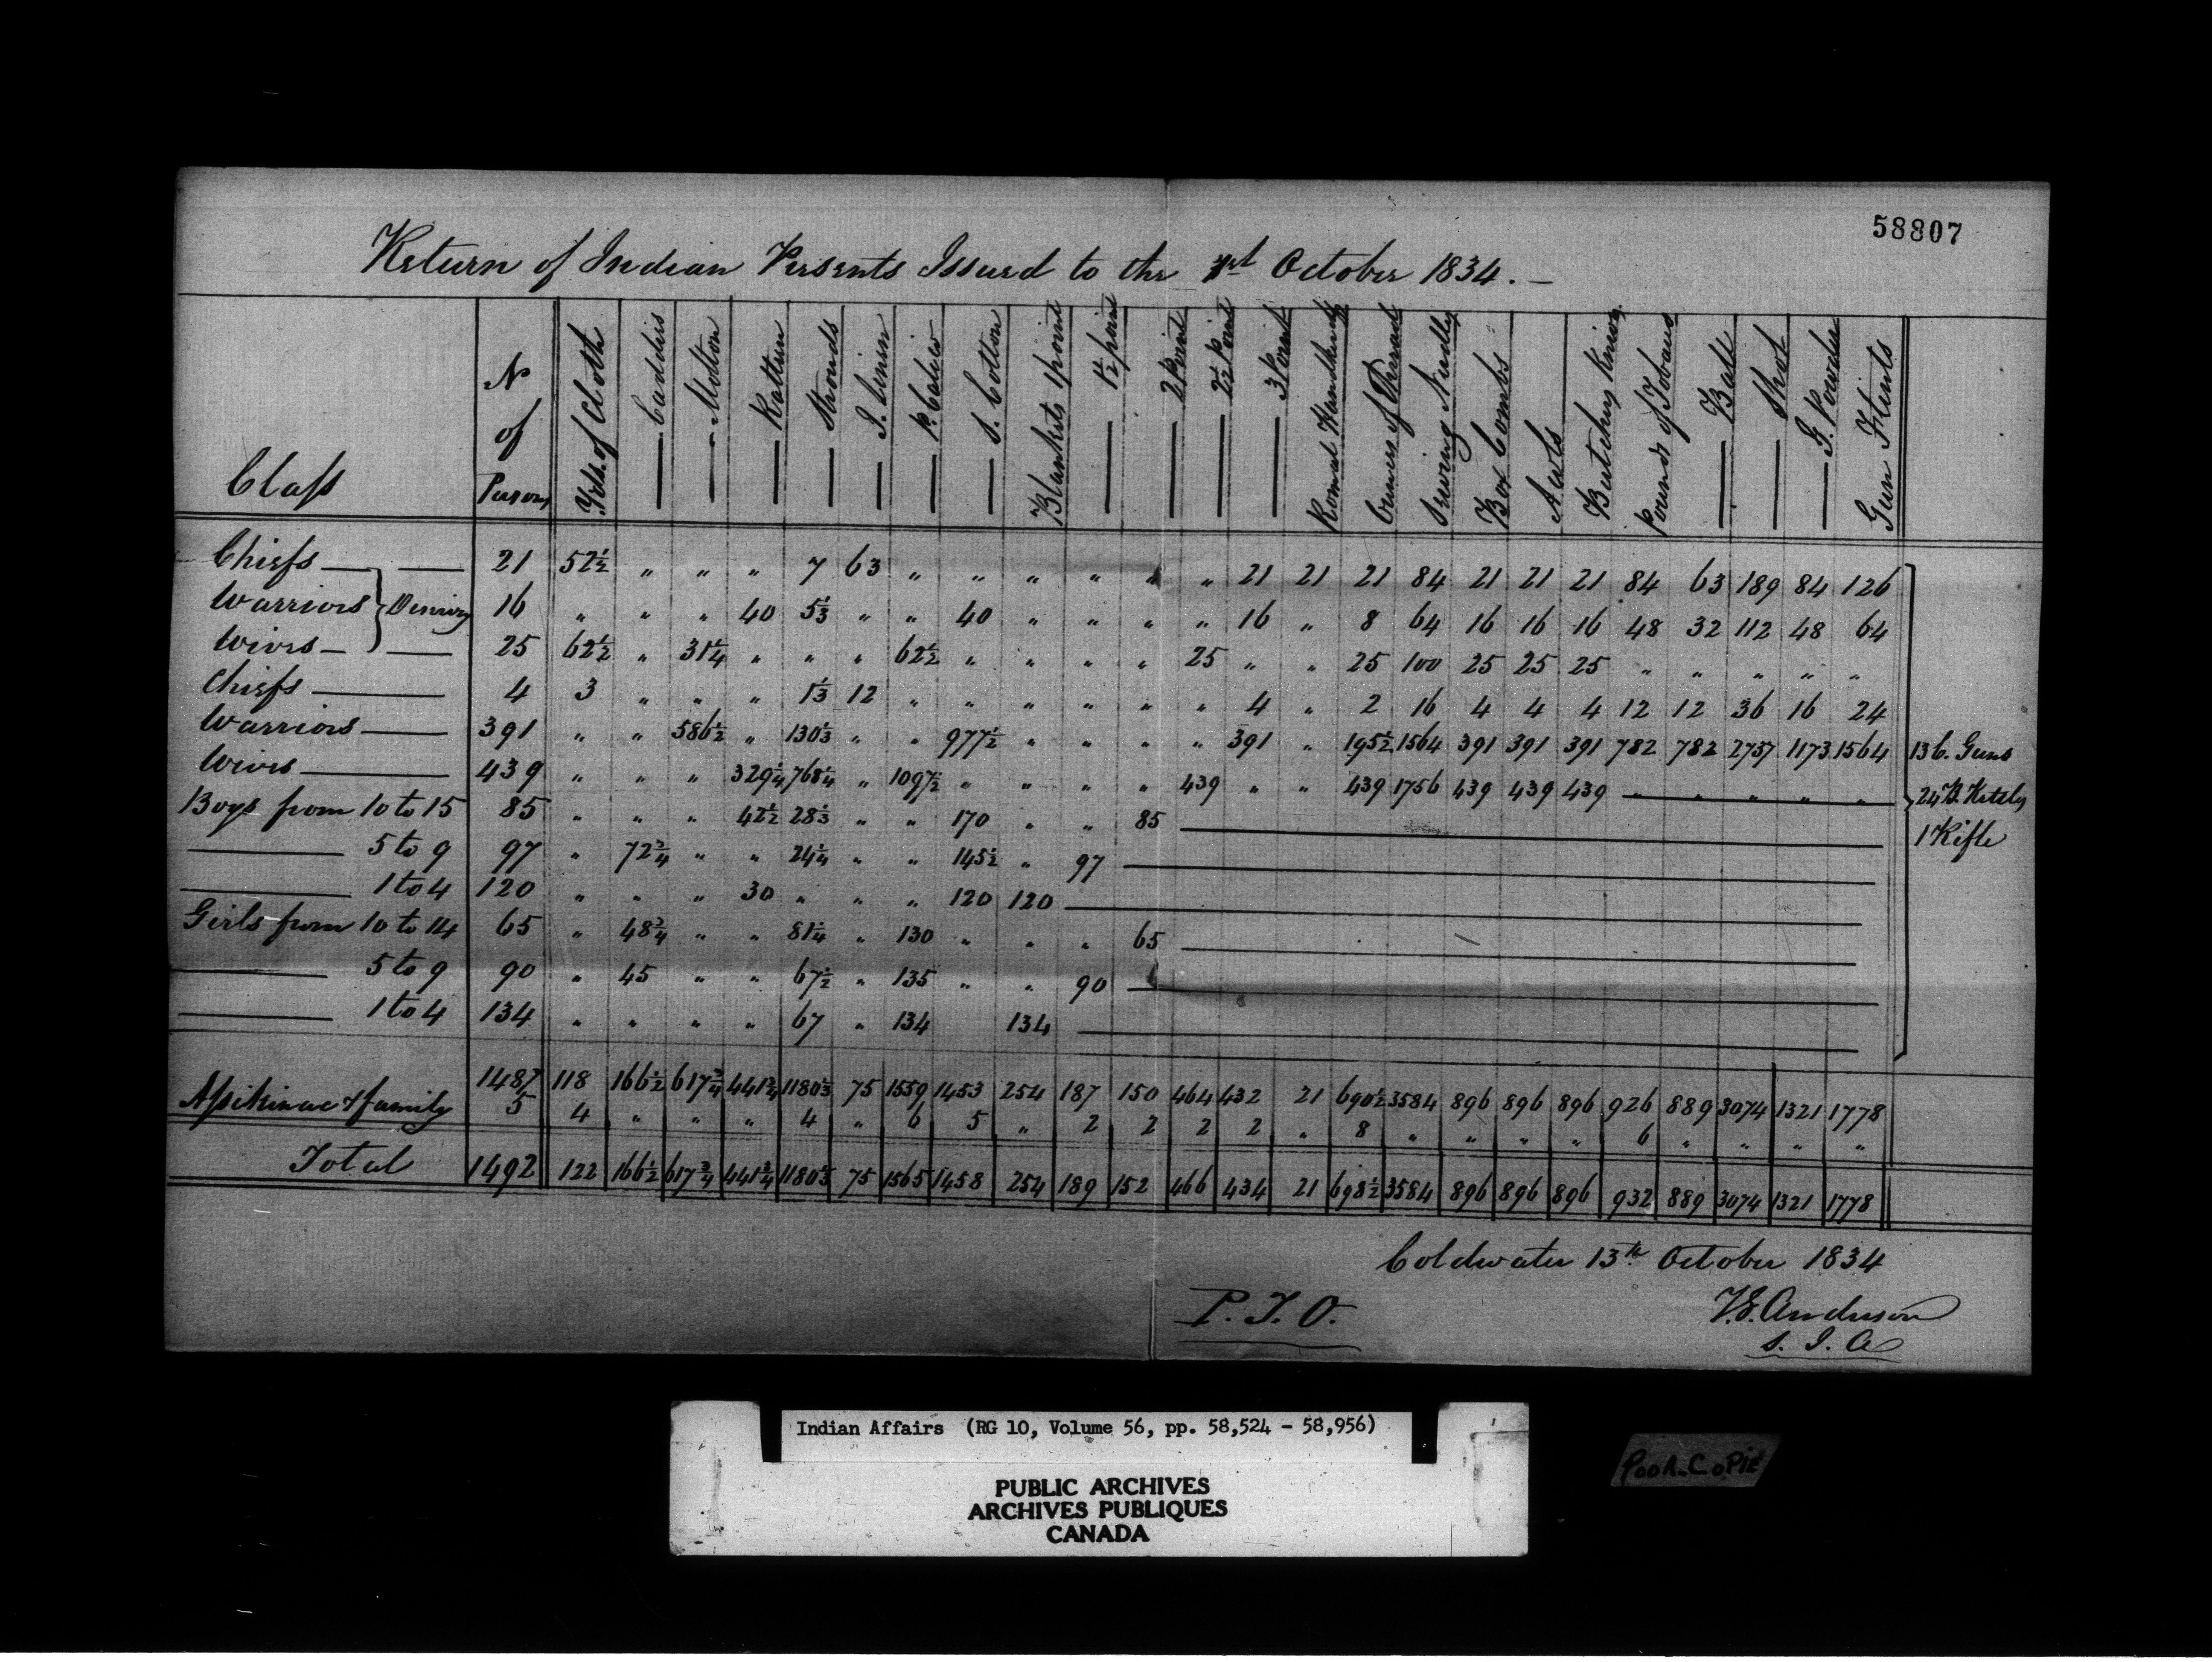 58807
Return of Indian Presents Issued to the 1st October 1834. —
Class | No of Persons | Yds. of Cloth | — Caddis | — Molton | — Ratteen | — Strouds | — I. Linen | — P. Calico | — S. Cotton | Blankets 1 point | — 1½ point | — 2 Point | — 2½ Point | — 3 Point | Romal Handkerfs | Ounces of Thread | Sewing Needles | Box Combs | Awls | Butchers Knives | Pounds of Tobacco | — Ball | — Shot | — G. Powder | Gun Flints
Chiefs — | 21 | 52½ | " | " | " | 7 | 63 | " | " | " | " | " | " | 21 | 21 | 21 | 84 | 21 | 21 | 21 | 84 | 63 | 189 | 84 | 126
Warriors } Deserving | 16 | " | " | " | 40 | 5⅓ | " | " | 40 | " | " | " | " | 16 | " | 8 | 64 | 16 | 16 | 16 | 48 | 32 | 112 | 48 | 64
Wives — | 25 | 62½ | " | 31¼ | " | " | " | 62½ | " | " | " | " | 25 | " | " | 25 | 100 | 25 | 25 | 25 | " | " | " | " | "
Chiefs — | 4 | 3 | " | " | " | 1⅓ | 12 | " | " | " | " | " | " | 4 | " | 2 | 16 | 4 | 4 | 4 | 12 | 12 | 36 | 16 | 24
Warriors — | 391 | " | " | 586½ | " | 130⅓ | " | " | 977½ | " | " | " | " | 391 | " | 195½ | 1564 | 391 | 391 | 391 | 782 | 782 | 2737 | 1173 | 1564 | 136. Guns
Wives — | 439 | " | " | " | 329¼ | 768¼ | " | 1097½ | " | " | " | " | 439 | " | " | 439 | 1756 | 439 | 439 | 439 | — | " | " | " | " | 24 B. Kettles
Boys from 10 to 15 | 85 | " | " | " | 42½ | 28⅓ | " | " | 170 | " | " | 85 | — | 1 Rifle
— 5 to 9 | 97 | " | 72¾ | " | " | 24¼ | " | " | 145½ | " | 97 | —
— 1 to 4 | 120 | " | " | " | 30 | " | " | " | 120 | 120 | —
Girls from 10 to 14 | 65 | " | 48¾ | " | " | 81¼ | " | 130 | " | " | " | 65 | —
— 5 to 9 | 90 | " | 45 | " | " | 67½ | " | 135 | " | " | 90 | —
— 1 to 4 | 134 | " | " | " | " | 67 | " | 134 | | 134 | —
1487 | 118 | 166½ | 617¾ | 441¾ | 1180⅓ | 75 | 1559 | 1453 | 254 | 187 | 150 | 464 | 432 | 21 | 690½ | 3584 | 896 | 896 | 896 | 926 | 889 | 3074 | 1321 | 1778
Assikinac & family | 5 | 4 | " | " | " | 4 | " | 6 | 5 | " | 2 | 2 | 2 | 2 | " | 8 | " | " | " | " | 6 | " | " | " | "
Total | 1492 | 122 | 166½ | 617¾ | 441¾ | 1180⅓ | 75 | 1565 | 1458 | 254 | 189 | 152 | 466 | 434 | 21 | 698½ | 3584 | 896 | 896 | 896 | 932 | 889 | 3074 | 1321 | 1778
Coldwater 13th October 1834
P.T.O.
T.G. Anderson
S. I. A
Indian Affairs (RG 10, Volume 56, pp. 58,524 - 58,956)
PUBLIC ARCHIVES
ARCHIVES PUBLIQUES
CANADA
POOR COPIE